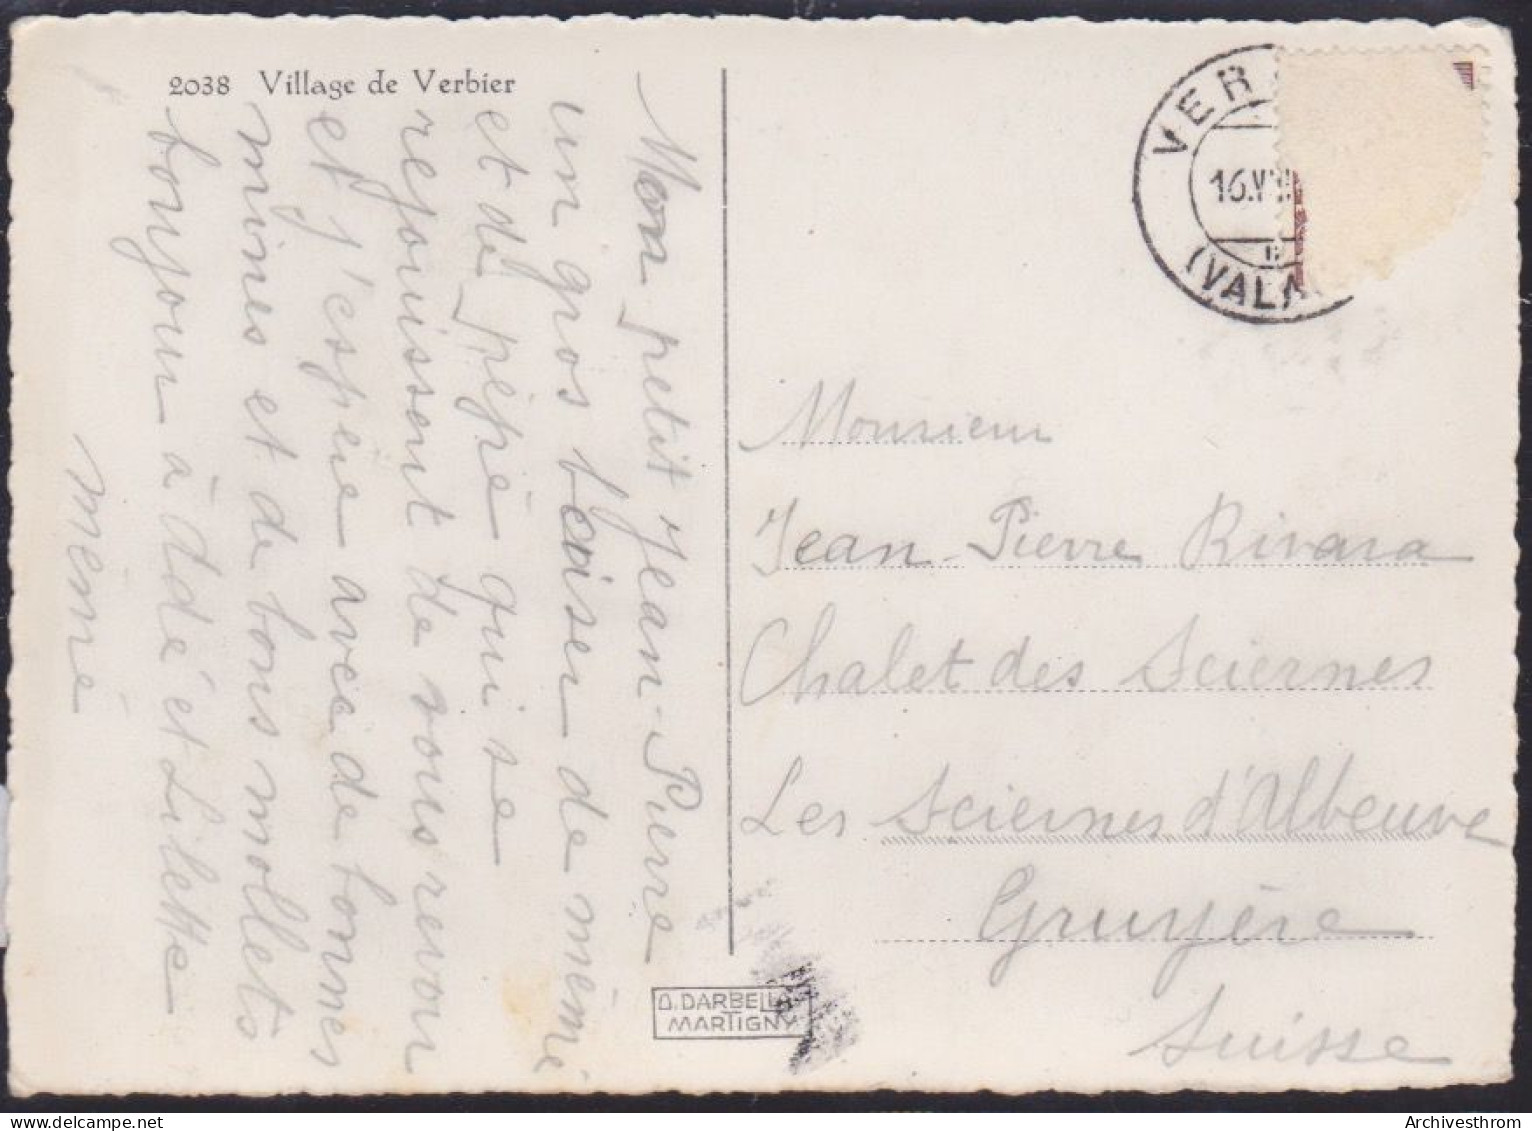 2038 Village de Verbier
Mon petit Jean-Pierre
un gros baiser de mémé
et de pépé qui se
rejouissent de vous revoir
et j'espère avec de bonnes
mines et de bons mollets
bonjour à Ddé et Lilette
mémé
VER
16.VII
(VALA
Monsieur
Jean-Pierre Rivara
Chalet des Sciernes
Les Sciernes d'Albeuve
Gruyère
Suisse
D. DARBELLA
MARTIGNY
Archivesthrom
delcampe.net